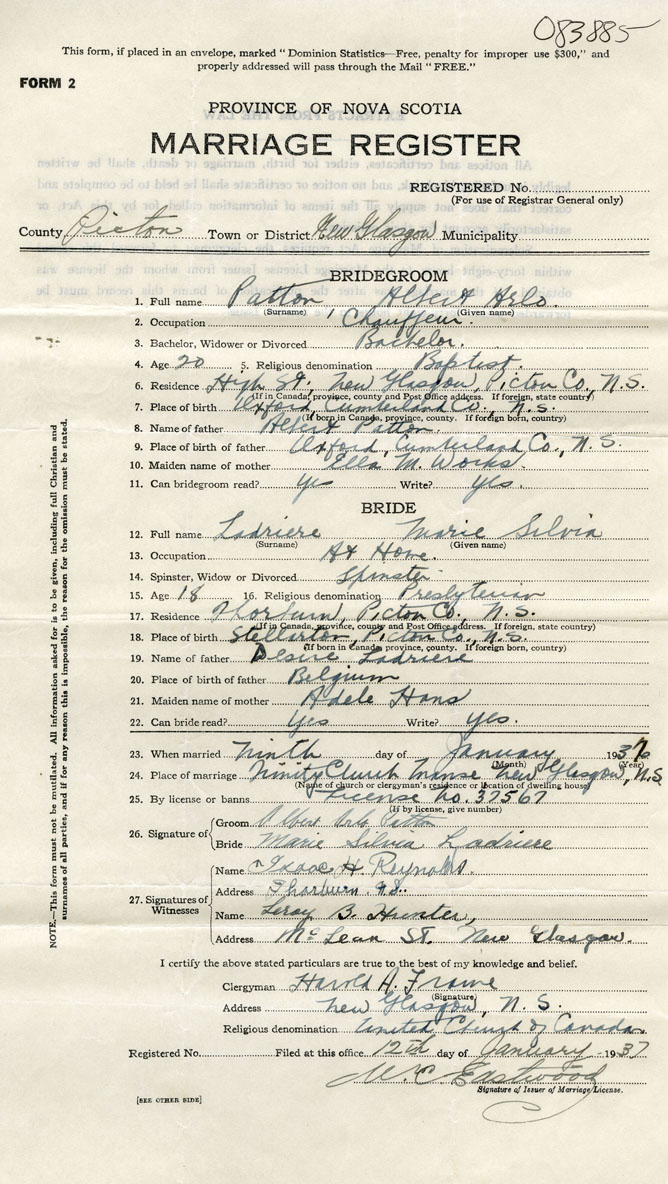 083885
This form, if placed in an envelope, marked "Dominion Statistics—Free, penalty for improper use $300," and
properly addressed will pass through the Mail "FREE."
FORM 2
PROVINCE OF NOVA SCOTIA
MARRIAGE REGISTER
REGISTERED No.
(For use of Registrar General only)
County Picton Town or District New Glasgow Municipality
BRIDEGROOM
1. Full name Patton Albert Arlo
(Surname) (Given name)
2. Occupation Chauffeur.
3. Bachelor, Widower or Divorced Bachelor.
4. Age 20 5. Religious denomination Baptist.
6. Residence High St., New Glasgow, Picton Co., N.S.
(If in Canada, province, county and Post Office address. If foreign, state country)
7. Place of birth Oxford, Cumberland Co., N.S.
(If born in Canada, province, county. If foreign born, country)
8. Name of father Albert Patton
9. Place of birth of father Oxford, Cumberland Co., N.S.
10. Maiden name of mother Ella M. Works.
11. Can bridegroom read? yes Write? yes.
BRIDE
12. Full name Ladriere Marie Silvia
(Surname) (Given name)
13. Occupation At Home.
14. Spinster, Widow or Divorced Spinster
15. Age 18 16. Religious denomination Presbyterian
17. Residence Thorburn, Picton Co., N.S.
(If in Canada, province, county and Post Office address. If foreign, state country)
18. Place of birth Stellarton, Picton Co., N.S.
(If born in Canada, province, county. If foreign born, country)
19. Name of father Desire Ladriere
20. Place of birth of father Belgium
21. Maiden name of mother Adele Hans
22. Can bride read? Yes Write? yes.
23. When married Ninth day of January 1937
(Month) (Year)
24. Place of marriage Trinity Church Manse New Glasgow, N.S.
(Name of church or clergyman's residence or location of dwelling house)
25. By license or banns License No. 37567
(If by license, give number)
26. Signature of Groom Albert Arlo Patton
Bride Marie Silvia Ladriere
27. Signatures of Witnesses
Name Isaac H. Reynolds.
Address Thorburn N.S.
Name Leroy B. Hunter,
Address McLean St. New Glasgow.
I certify the above stated particulars are true to the best of my knowledge and belief.
Clergyman Harold A. Frame
(Signature)
Address New Glasgow, N.S.
Religious denomination United Church of Canada
Registered No. Filed at this office 12th day of January 1937
W. C. Eastwood
Signature of Issuer of Marriage License.
[SEE OTHER SIDE]
NOTE.—This form must not be mutilated. All information asked for is to be given, including full Christian and
surnames of all parties, and if for any reason this is impossible, the reason for the omission must be stated.